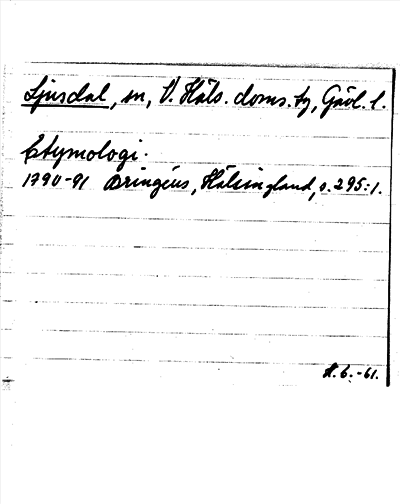 Ljusdal, sn, V. Häls. doms. tg, Gävl. l.
Etymologi.
1790-91 Bringéus, Hälsingland, s. 295:1.
H. 6. -61.